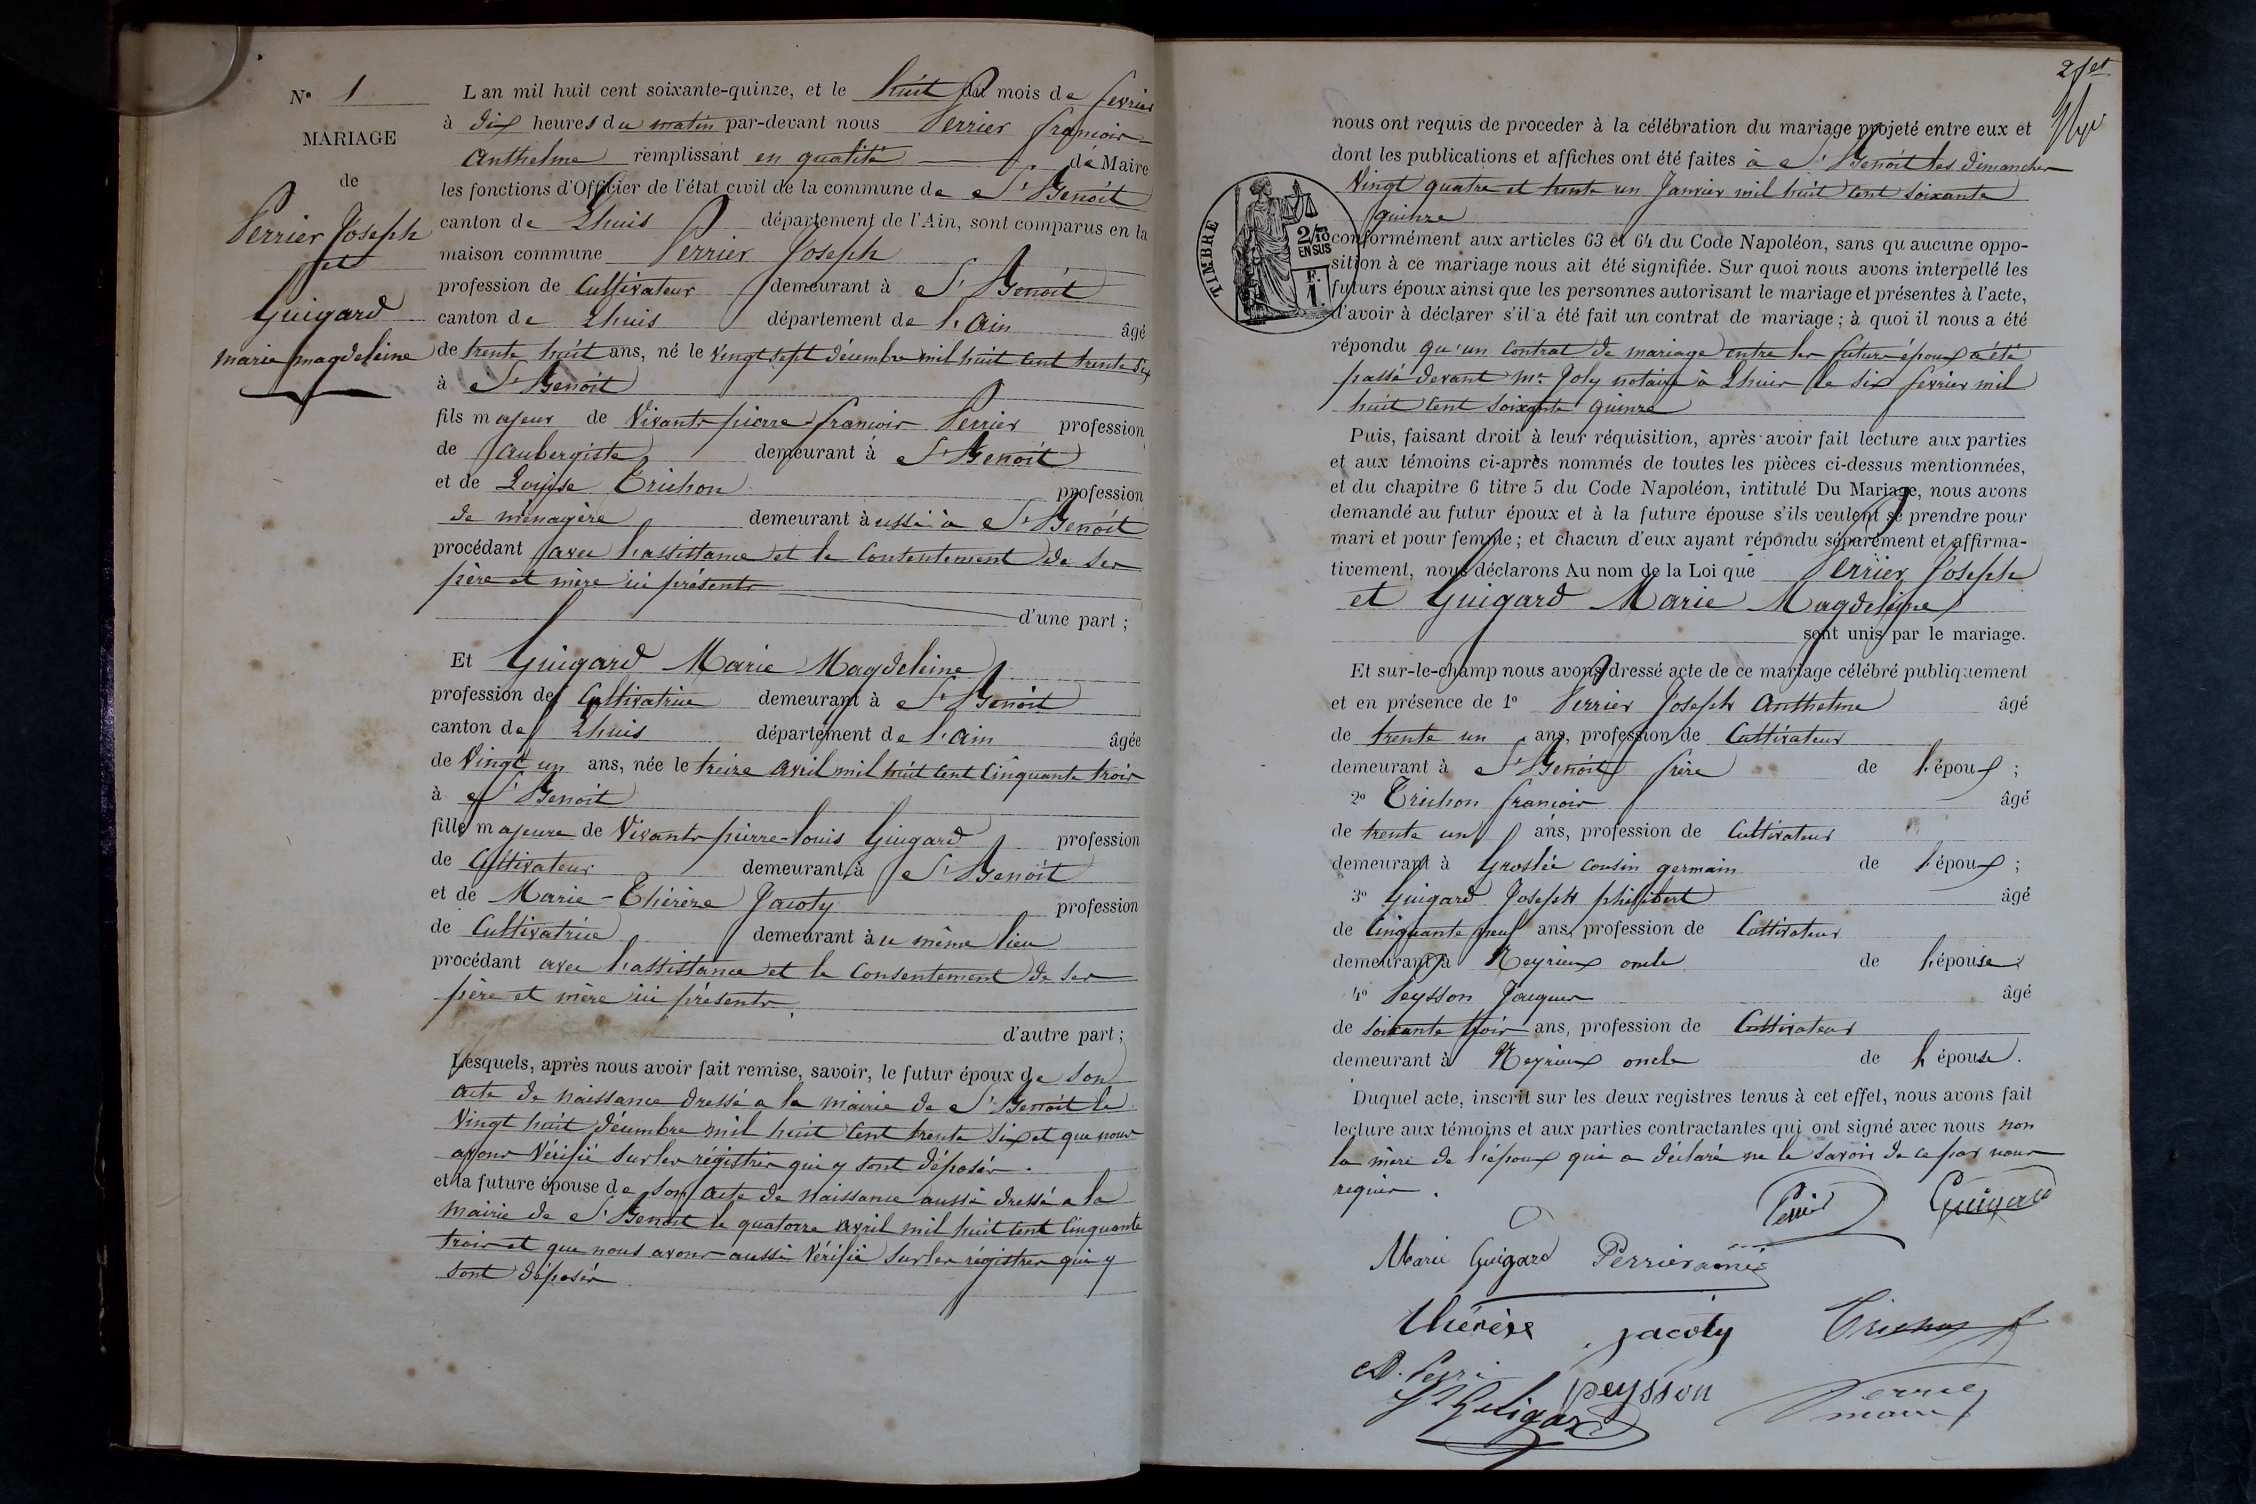 N° 1
MARIAGE
de
Perrier Joseph
et
Guigard
marie magdeleine
L an mil huit cent soixante-quinze, et le huit du mois de fevrier
à dix heures du matin par-devant nous Perrier françois
Anthelme remplissant en qualité de Maire
les fonctions d'Officier de l'état civil de la commune de St Benoît
canton de Lhuis département de l'Ain, sont comparus en la
maison commune Perrier Joseph
profession de Cultivateur demeurant à St Benoît
canton de Lhuis département de l'Ain âgé
de trente huit ans, né le vingt sept décembre mil huit cent trente six
à St Benoît
fils majeur de Vivants pierre françois Perrier profession
de aubergiste demeurant à St Benoît
et de Louise Trichon profession
de ménagère demeurant à ussi à St Benoît
procédant avec l'assistance et le consentement de ses
père et mère ici présents
d'une part ;
Et Guigard Marie Magdeleine
profession de Cultivatrice demeurant à St Benoît
canton de Lhuis département de l'Ain âgée
de Vingt un ans, née le treize avril mil huit cent cinquante trois
à St Benoît
fille majeure de Vivants pierre-louis Guigard profession
de Cultivateur demeurant à St Benoît
et de Marie-Thérèze Jacoty profession
de Cultivatrice demeurant à u même lieu
procédant avec l'assistance et le consentement de ses
père et mère ici présents.
d'autre part ;
Lesquels, après nous avoir fait remise, savoir, le futur époux de son
acte de naissance dressé a la mairie de St Benoît le
Vingt huit décembre mil huit cent trente six et que nous
avons vérifié sur les régistres qui y sont déposés.
et la future épouse de son acte de naissance aussi dressé a la
mairie de St Benoît le quatorze avril mil huit cent cinquante
trois et que nous avons aussi vérifié sur les régistres qui y
sont déposés
2 fet
TIMBRE
2/10
EN SUS
F.
1.
nous ont requis de proceder à la célébration du mariage projeté entre eux et
dont les publications et affiches ont été faites à St Benoît les dimanches
Vingt quatre et trente un Janvier mil huit cent soixante
quinze
conformément aux articles 63 et 64 du Code Napoléon, sans qu aucune oppo-
sition à ce mariage nous ait été signifiée. Sur quoi nous avons interpellé les
futurs époux ainsi que les personnes autorisant le mariage et présentes à l'acte,
d'avoir à déclarer s'il a été fait un contrat de mariage ; à quoi il nous a été
répondu qu'un contrat de mariage entre les futurs époux a été
passé devant Mr Joly notaire à Lhuis le six fevrier mil
huit cent soixante quinze
Puis, faisant droit à leur réquisition, après avoir fait lecture aux parties
et aux témoins ci-après nommés de toutes les pièces ci-dessus mentionnées,
et du chapitre 6 titre 5 du Code Napoléon, intitulé Du Mariage, nous avons
demandé au futur époux et à la future épouse s'ils veulent se prendre pour
mari et pour femme ; et chacun d'eux ayant répondu séparément et affirma-
tivement, nous déclarons Au nom de la Loi que Perrier Joseph
et Guigard Marie Magdeleine
sont unis par le mariage.
Et sur-le-champ nous avons dressé acte de ce mariage célébré publiquement
et en présence de 1° Perrier Joseph Anthelme âgé
de trente un ans, profession de Cultivateur
demeurant à St Benoît frère de l'époux ;
2° Trichon françois âgé
de trente un ans, profession de Cultivateur
demeurant à Groslée cousin germain de l'époux ;
3° Guigard Joseph philibert âgé
de Cinquante neuf ans, profession de Cultivateur
demeurant à Neyrieux oncle de l'épouse
4° Peysson Jacques âgé
de soixante trois ans, profession de Cultivateur
demeurant à Neyrieux oncle de l'épouse.
Duquel acte, inscrit sur les deux registres tenus à cet effet, nous avons fait
lecture aux témoins et aux parties contractantes qui ont signé avec nous non
la mère de l'époux qui a déclaré ne le savoir de ce par nous
requise.
Perrier Guigard
Marie Guigard Perrier ainé
thérèse jacoty Trichon f
peysson
J Guigard
Perrier
maire